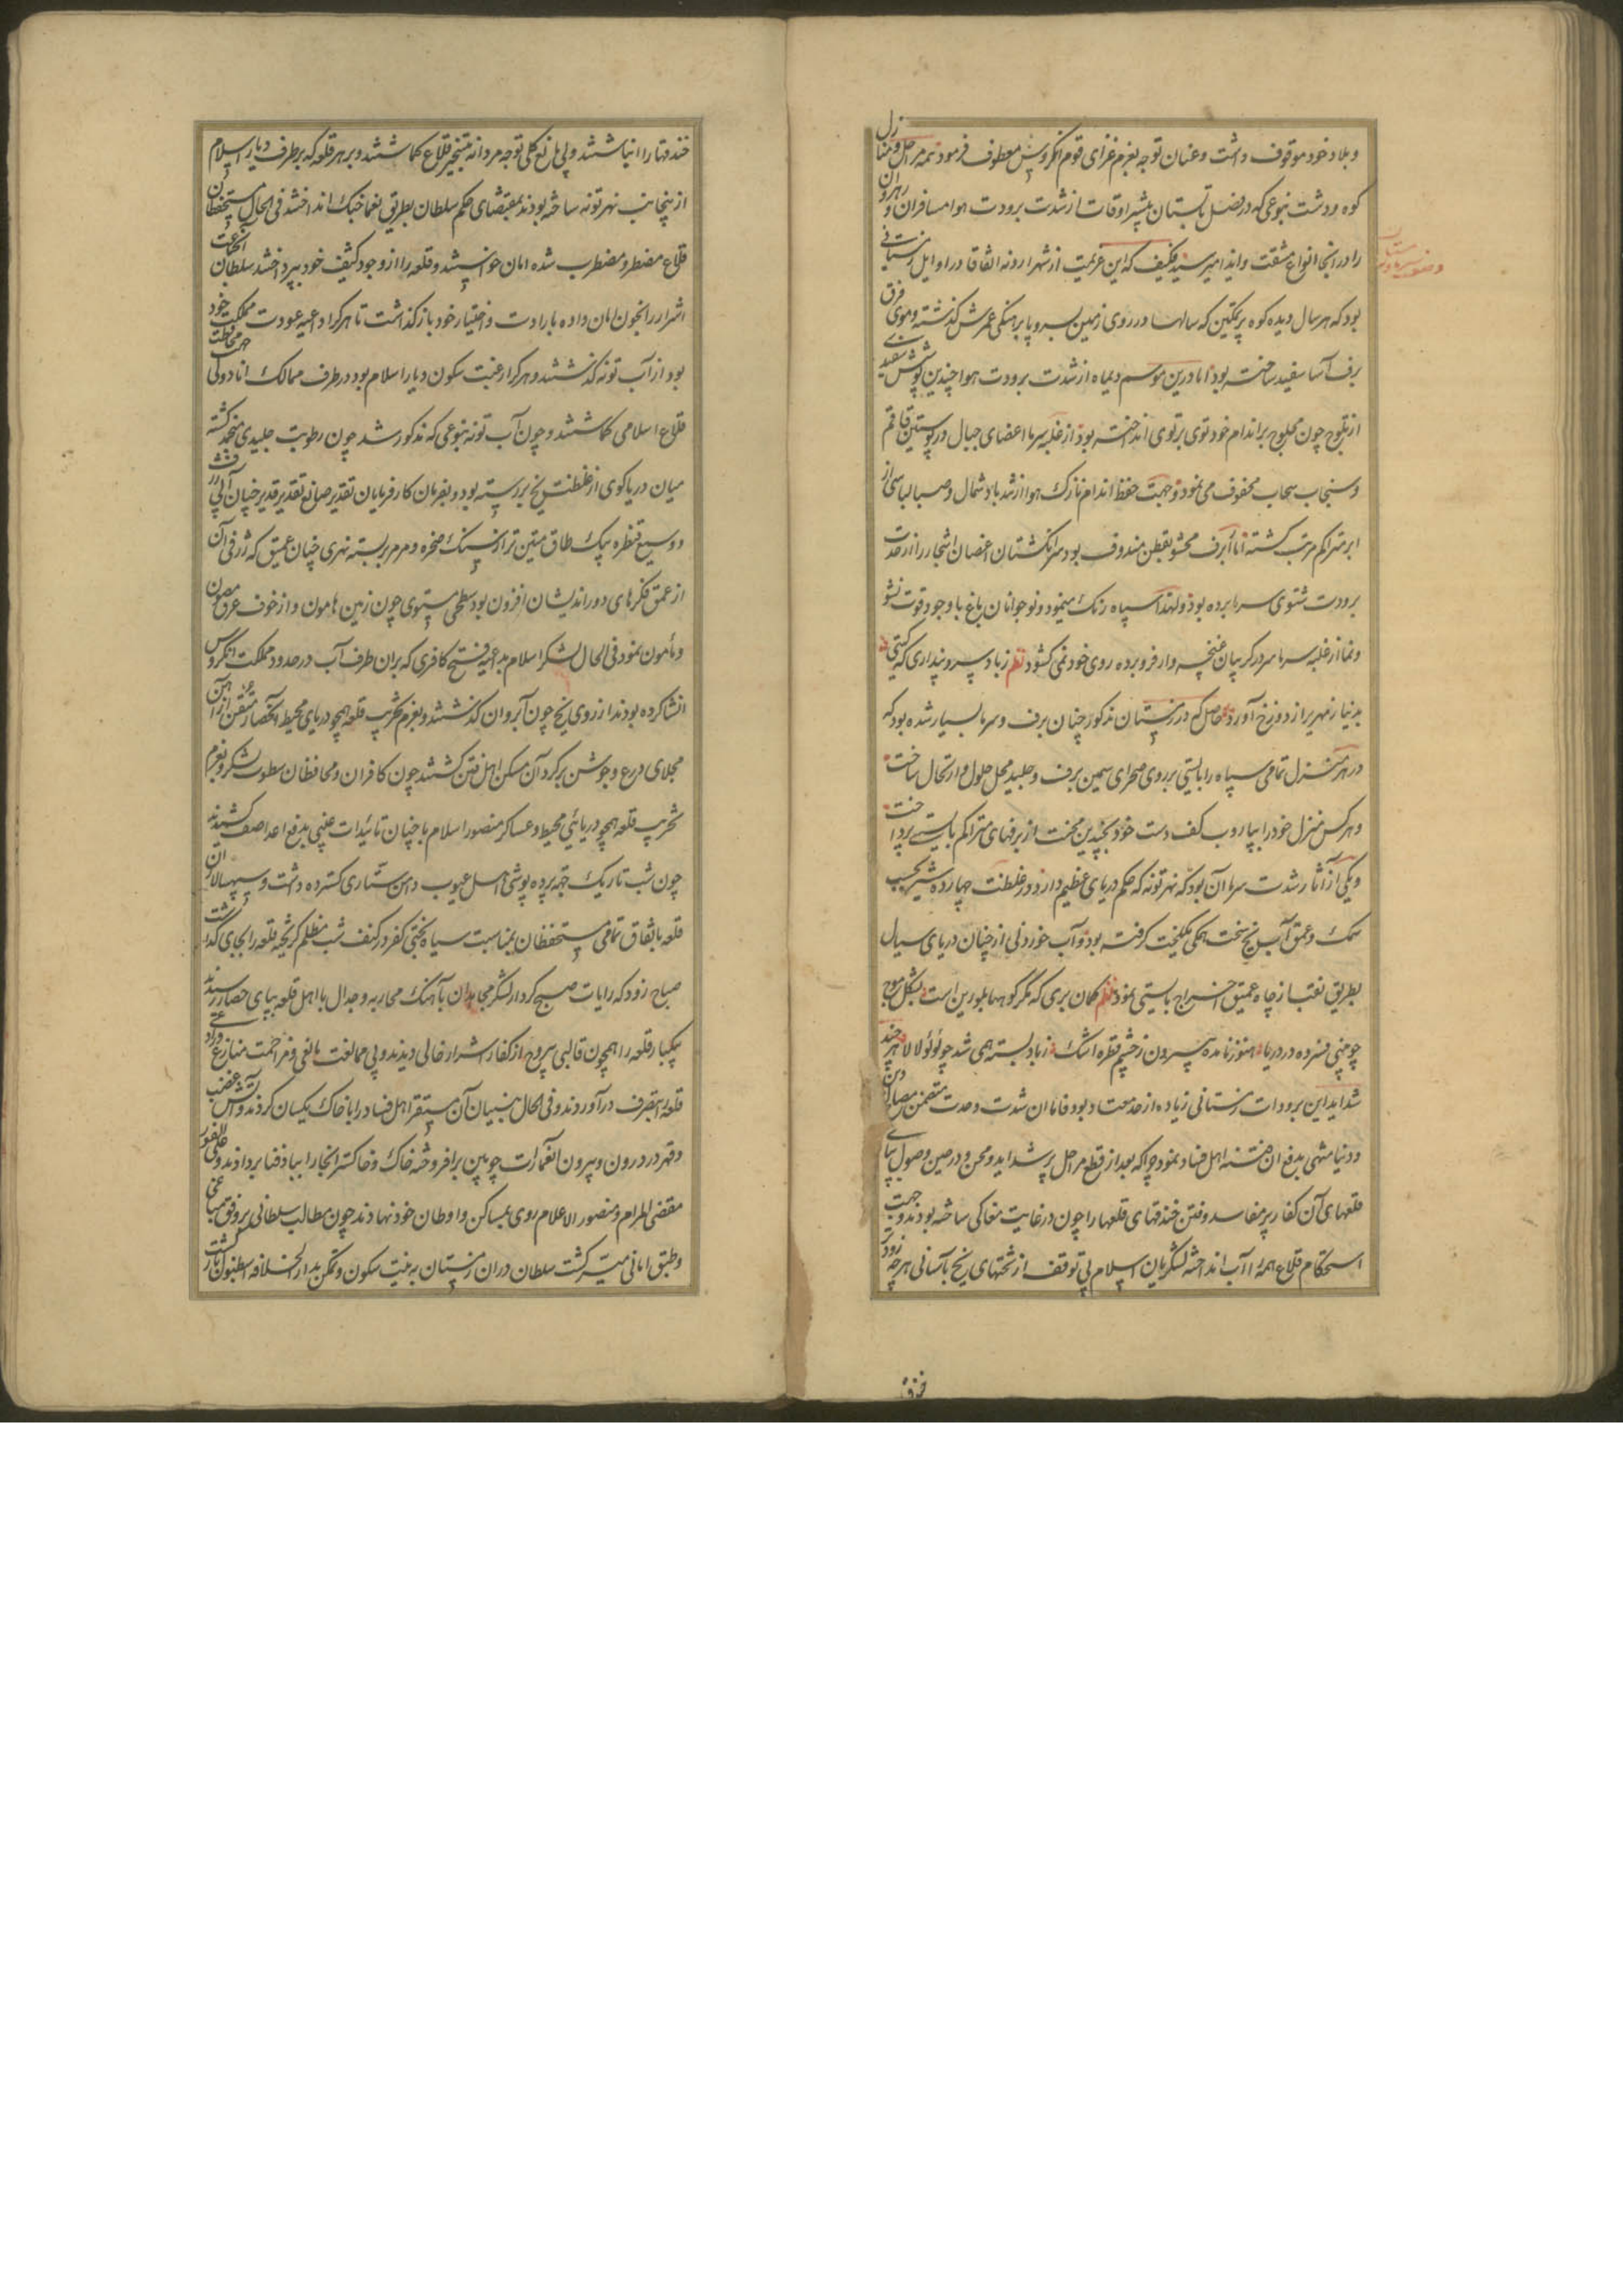 و بلاد خود موقوف داشت و عنان توجه بعزم غزای قوم انکروس معطوف فرمود همه مراحل و منازل
کوه و دشت بنوعی که در فصل تابستان بیشتر اوقات از شدت برودت هوا مسافران و رهروان
را در انجا انواع مشقت و ایذا میرسید فکیف که این عزیمت از شهر ادرنه اتفاقا در اوایل زمستانی
بود که هر سال دیده کوه پر تمکین که سالها در روی زمین بسر و پا برهنکی عمرش کذشته و موی فرق
برف آسا سفید ساخته بود اما درین موسم دیماه از شدت برودت هوا چندین پوشش سفید
از ثلوج چون محلوج بر اندام خود توی بر توی انداخته بود از غلبه سرما اعضای جبال در پوستین قاقم
و سنجاب سحاب محفوف می نمود و جهت حفظ اندام نازک هوا از شد باد شمال و صبا لباسی از
ابر متراکم مرتب کشته اما برف محشو بقطن مندوف بود سر انکشتان اغصان اشجار را از حدت
برودت شتوی سرما برده بود ولهذا سیاه رنک مینمود و نوجوانان باغ با وجود قوت نشو
و نما از غلبه سرما سر در کریبان غنچه وار فرو برده روی خود نمی کشود نظم ز باد سرد پنداری که کیتی
بدنیا زمهریر از دوزخ آورد حاصل که در زمستان مذکور چنان برف و سرما بسیار شده بود که
در هر منزل تمامی سپاه را بایستی بر روی صحرای سیمین برف و جلید محل حلول و ارتحال ساخت
و هر کس منزل خود را بجاروب کف دست خود بچندین محنت از برفهای متراکم بایستی پرداخت
و یکی از آثار شدت سرما آن بود که نهر تونه که حکم دریای عظیم دارد در غلظت چهارده شبر بحسب
سمک و عمق آب یخ سخت همکی یکلخت کرفته بود و آب خوردنی از چنان دریای سیال
بطریق نقب از چاه عمیق اخراج بایستی نمود نظم کمان بری که مکر کوهها بلورین است بشکل موج
چو یخ فسرده در دریا هنوز نامده بیرون ز چشم قطره اشک ز باد بسته همی شد چو لؤلؤ لالا هر چند
شداید این برودات زمستانی زیاده از حد معتاد بود فاما آن شدت و حدت متضمن مصالح دین
و دنیا منتهی بدفع آن فتنه اهل فساد نمود چرا که بعد از قطع مراحل پر شداید و محن و در حین وصول بپای
قلعهای آن کفار پر مفاسد و فتن خندقهای قلعها را چون در غایت مغاکی ساخته بودند و جهت
استحکام قلاع همه را آب انداخته لشکریان اسلام بی توقف از تختهای یخ بآسانی هر چه زودتر
خندقها را انباشتند و بی مانع کلی توجه مردانه بتسخیر قلاع کماشتند و بر هر قلعه که بر طرف دیار اسلام
از ینجانب نهر تونه ساخته بودند بمقتضای حکم سلطان بطریق یغما جنک انداختند فی الحال مستحفظان
قلاع مضطر و مضطرب شده امان خواستند و قلعه را از وجود کثیف خود بپرداختند سلطان انجماعت
اشرار را بخون امان داده بارادت و اختیار خود باز کذاشت تا هر کرا داعیه عودت مملکت خود
بود از آب تونه کذشتند و هر کرا رغبت سکون دیار اسلام بود در طرف ممالک اناطولی جهت محافظت
قلاع اسلامی کماشتند و چون آب تونه بنوعی که مذکور شد چون رطوبت جلیدی منجمد کشته
میان دریا کوی از غلظت یخ بر رسته بود و بفرمان کارفرمایان تقدیر صانع تقدیر قدیر چنان آلی ژرف
و وسیع قنطره بیک طاق متین تر از سنک صخره و مرمر بر بسته نهری چنان عمیق که ژرفی آن
از عمق فکرهای دوراندیشان افزون بود سطحی مستوی چون زمین هامون و از خوف غرق مصون
و مامون نمود فی الحال لشکر اسلام بداعیه فتح کافری که بران طرف آب در حدود مملکت انکروس
انشا کرده بودند از روی یخ چون آب روان کذشتند و بعزم تخریب قلعه همچو دریای محیط آنحصار متقن از آهن
مجلای درع و جوشن بر کرد آن مسکن اهل فتن کشتند چون کافران و محافظان سطوت لشکر و بعزم
تخریب قلعه همچو دریائی محیط و عساکر منصور اسلام با چنان تائیدات غیبی بدفع اعدا صف کشیدند
چون شب تاریک جهت پرده پوشی اهل عیوب دامن ستاری کسترده داشت و سپهسالاران
قلعه باتفاق تمامی مستحفظان بمناسبت سیاه بختی کفر در کنف شب مظلم کریخته قلعه را بجای کذاشت
صباح زود که رایات صبح کردار لشکر مجاهدان بآهنک محاربه و جدال با اهل قلعه بپای حصار رسیدند
یکبار قلعه را همچون قالبی بیروح از کفار اشرار خالی دیدند و بی ممانعت مانعی و مزاحمت منازعی وارد
قلعه بتصرف در آوردند و فی الحال بنیان آن مستقر اهل فساد را با خاک یکسان کردند و آتش غضب
و قهر در درون و بیرون آنعمارت چوبین برافروخته خاک و خاکستر انجا را بباد فنا بردادند و علی الفور
مقضی المرام و منصور الاعلام روی بمساکن و اوطان خود نهادند چون مطالب سلطانی بر وفق مباغی
و طبق امانی میسر کشت سلطان دران زمستان به نیت سکون و تمکن بدار الخلافه استنبول باز کشت